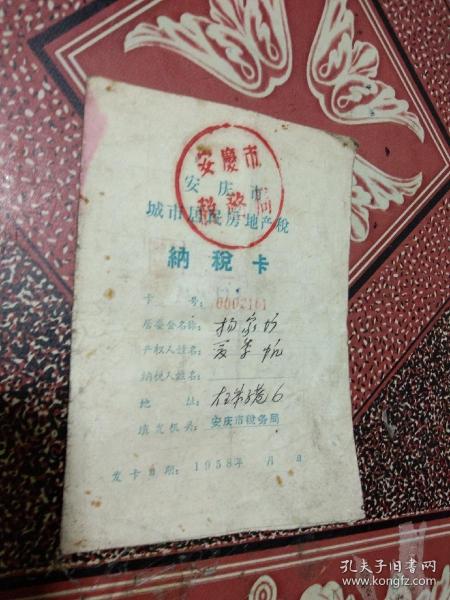 安慶市
税務局
安庆市
城市居民房地产税
納税卡
卡号：0002161
居委会名称：杨家坊
产权人姓名：
纳税人姓名：
地址：
填发机关：安庆市税务局
发卡日期：1958年 月 日
孔夫子旧书网
www.kongfz.com